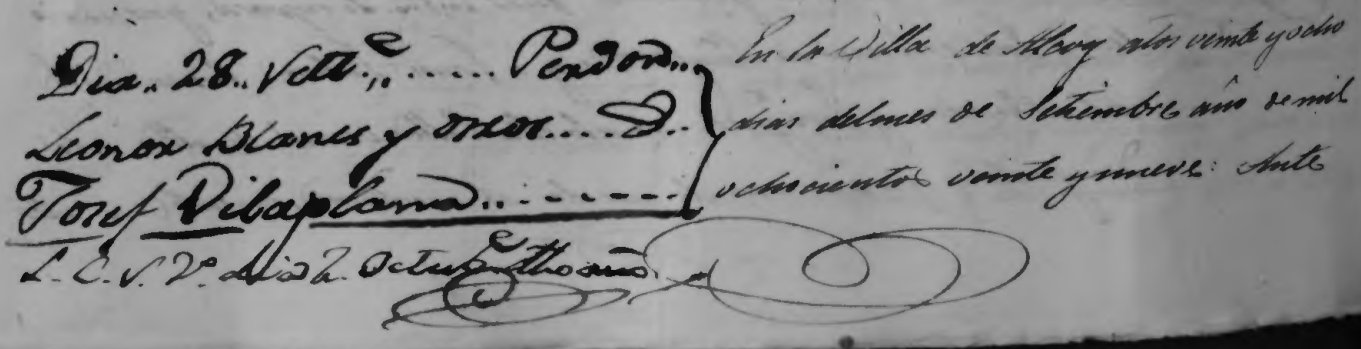 Dia.. 28.. Sett.e ...... Perdon..
Leonor Blanes y otros.... D..
Josef Vilaplana..........
L. C. S. 2º dia 2. Octue. dho año.
En la Villa de Alcoy a los veinte y ocho
dias del mes de Setiembre año de mil
ochocientos veinte y nueve: Ante